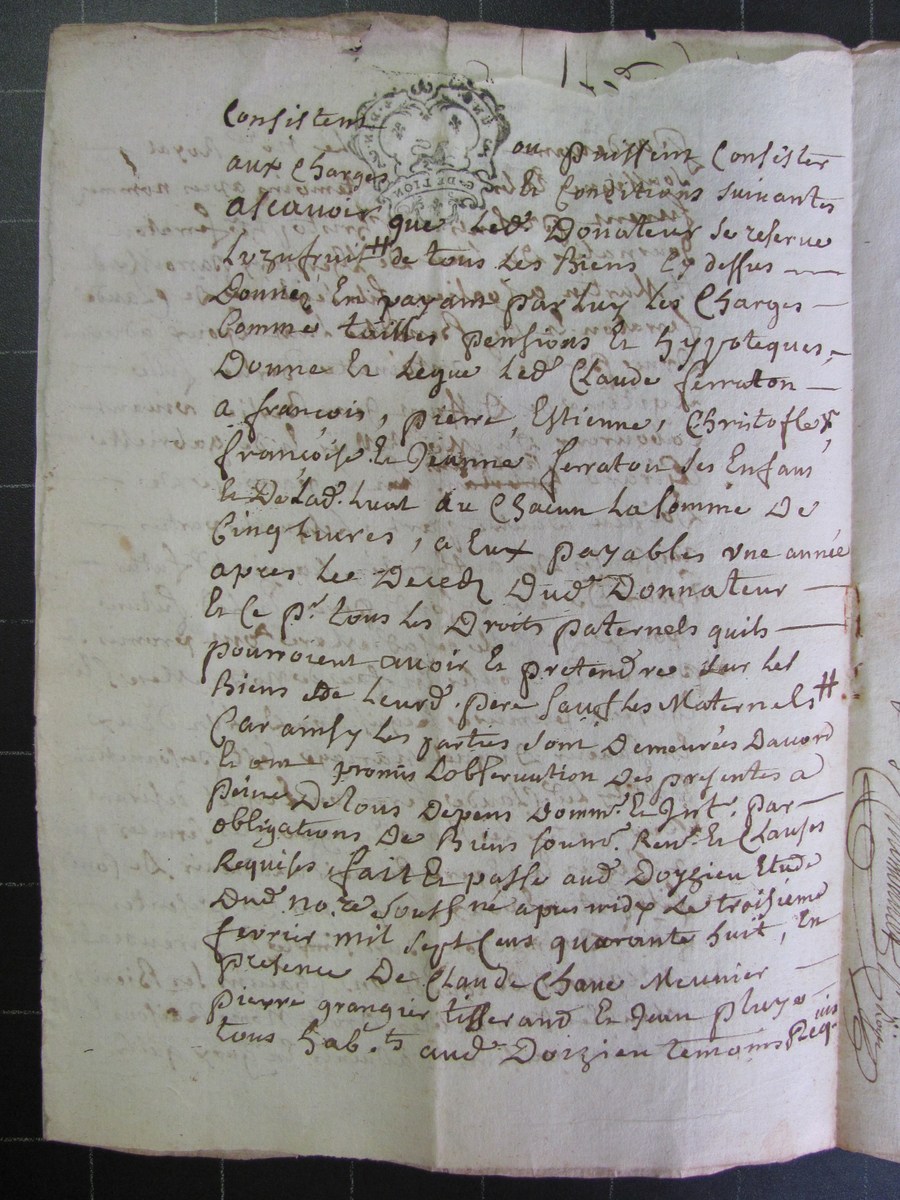 Consistent ou puissent Consister
aux Charges Et Conditions suivantes
ascavoir que Led. Donateur se reserve
Luzufruit # de tous Les Biens Cy dessus
Donnez En payant par Luy Les Charges
Comme tailles pensions Et hypoteques,
Donne Et Legue Led. Claude ferraton
a françois, pierre, Estienne, Christofle,
françoise Et Jeanne ferraton ses Enfans
Et De Lad. Chacun La somme De
Cinq Livres, a Eux payables une année
apres Le Deced Dud. Donnateur
Et Ce pr. tous Les Droits paternels quils
pourroient avoir Et pretendre sur Les
Biens de Leurd. pere sauf Les Maternels #
Car ainsy Les parties sont Demeurées Dacord
Et ont promis Lobservation Des presentes a
peine De tous Depens Domm. Et Int. par
obligations De Biens soum. Ren. Et Clauses
Requises, fait Et passe aud. Doyzieu Etude
Dud. no.re souss.ne apres midy Le troisieme
fevrier mil sept Cens quarante huit, En
presence De Claude Chave Meunier
pierre grangier tisserand Et Jean
tous hab.ts aud. Doizieu temoins Requis
G. DE LION